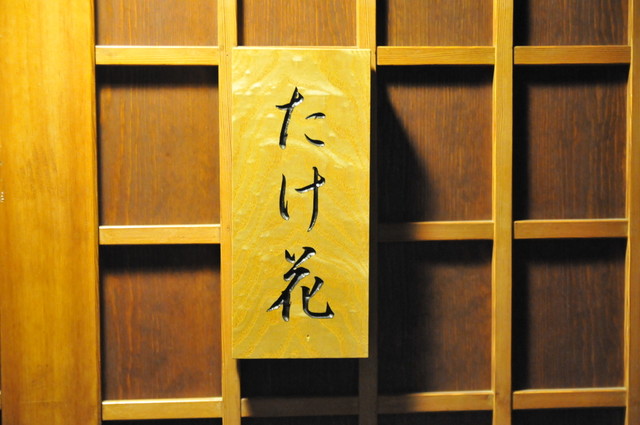 たけ花